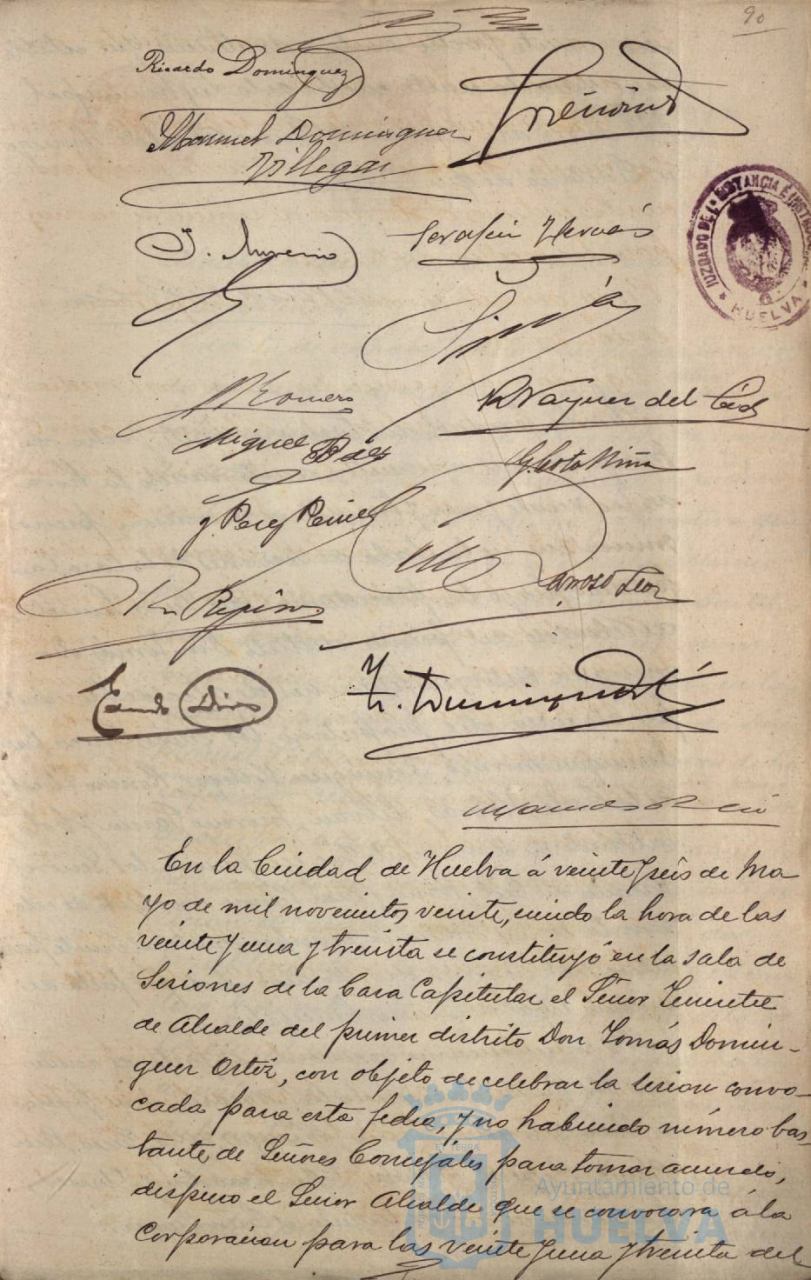 90
Ricardo Dominguez
Manuel Dominguez
Villegas
J. Moreno
Serafin Hervás
JUZGADO DE 1ª INSTANCIA É INSTRUCCION
HUELVA
Romero
R Vazquez del Cid
Miguel Báez
G. Coto Niña
Perez
Barroso
Díaz
En la Ciudad de Huelva á veinte y seis de Ma-
yo de mil novecientos veinte, siendo la hora de las
veinte y una y treinta se constituyó en la sala de
Sesiones de la Casa Capitular el Señor Teniente
de Alcalde del primer distrito Don Tomás Domin-
guez Ortiz, con objeto de celebrar la sesion convo-
cada para esta fecha, y no habiendo número bas-
tante de Señores Concejales para tomar acuerdo,
dispuso el Señor Alcalde que se convocara á la
Corporacion para las veinte y una y treinta del
Ayuntamiento de
HUELVA